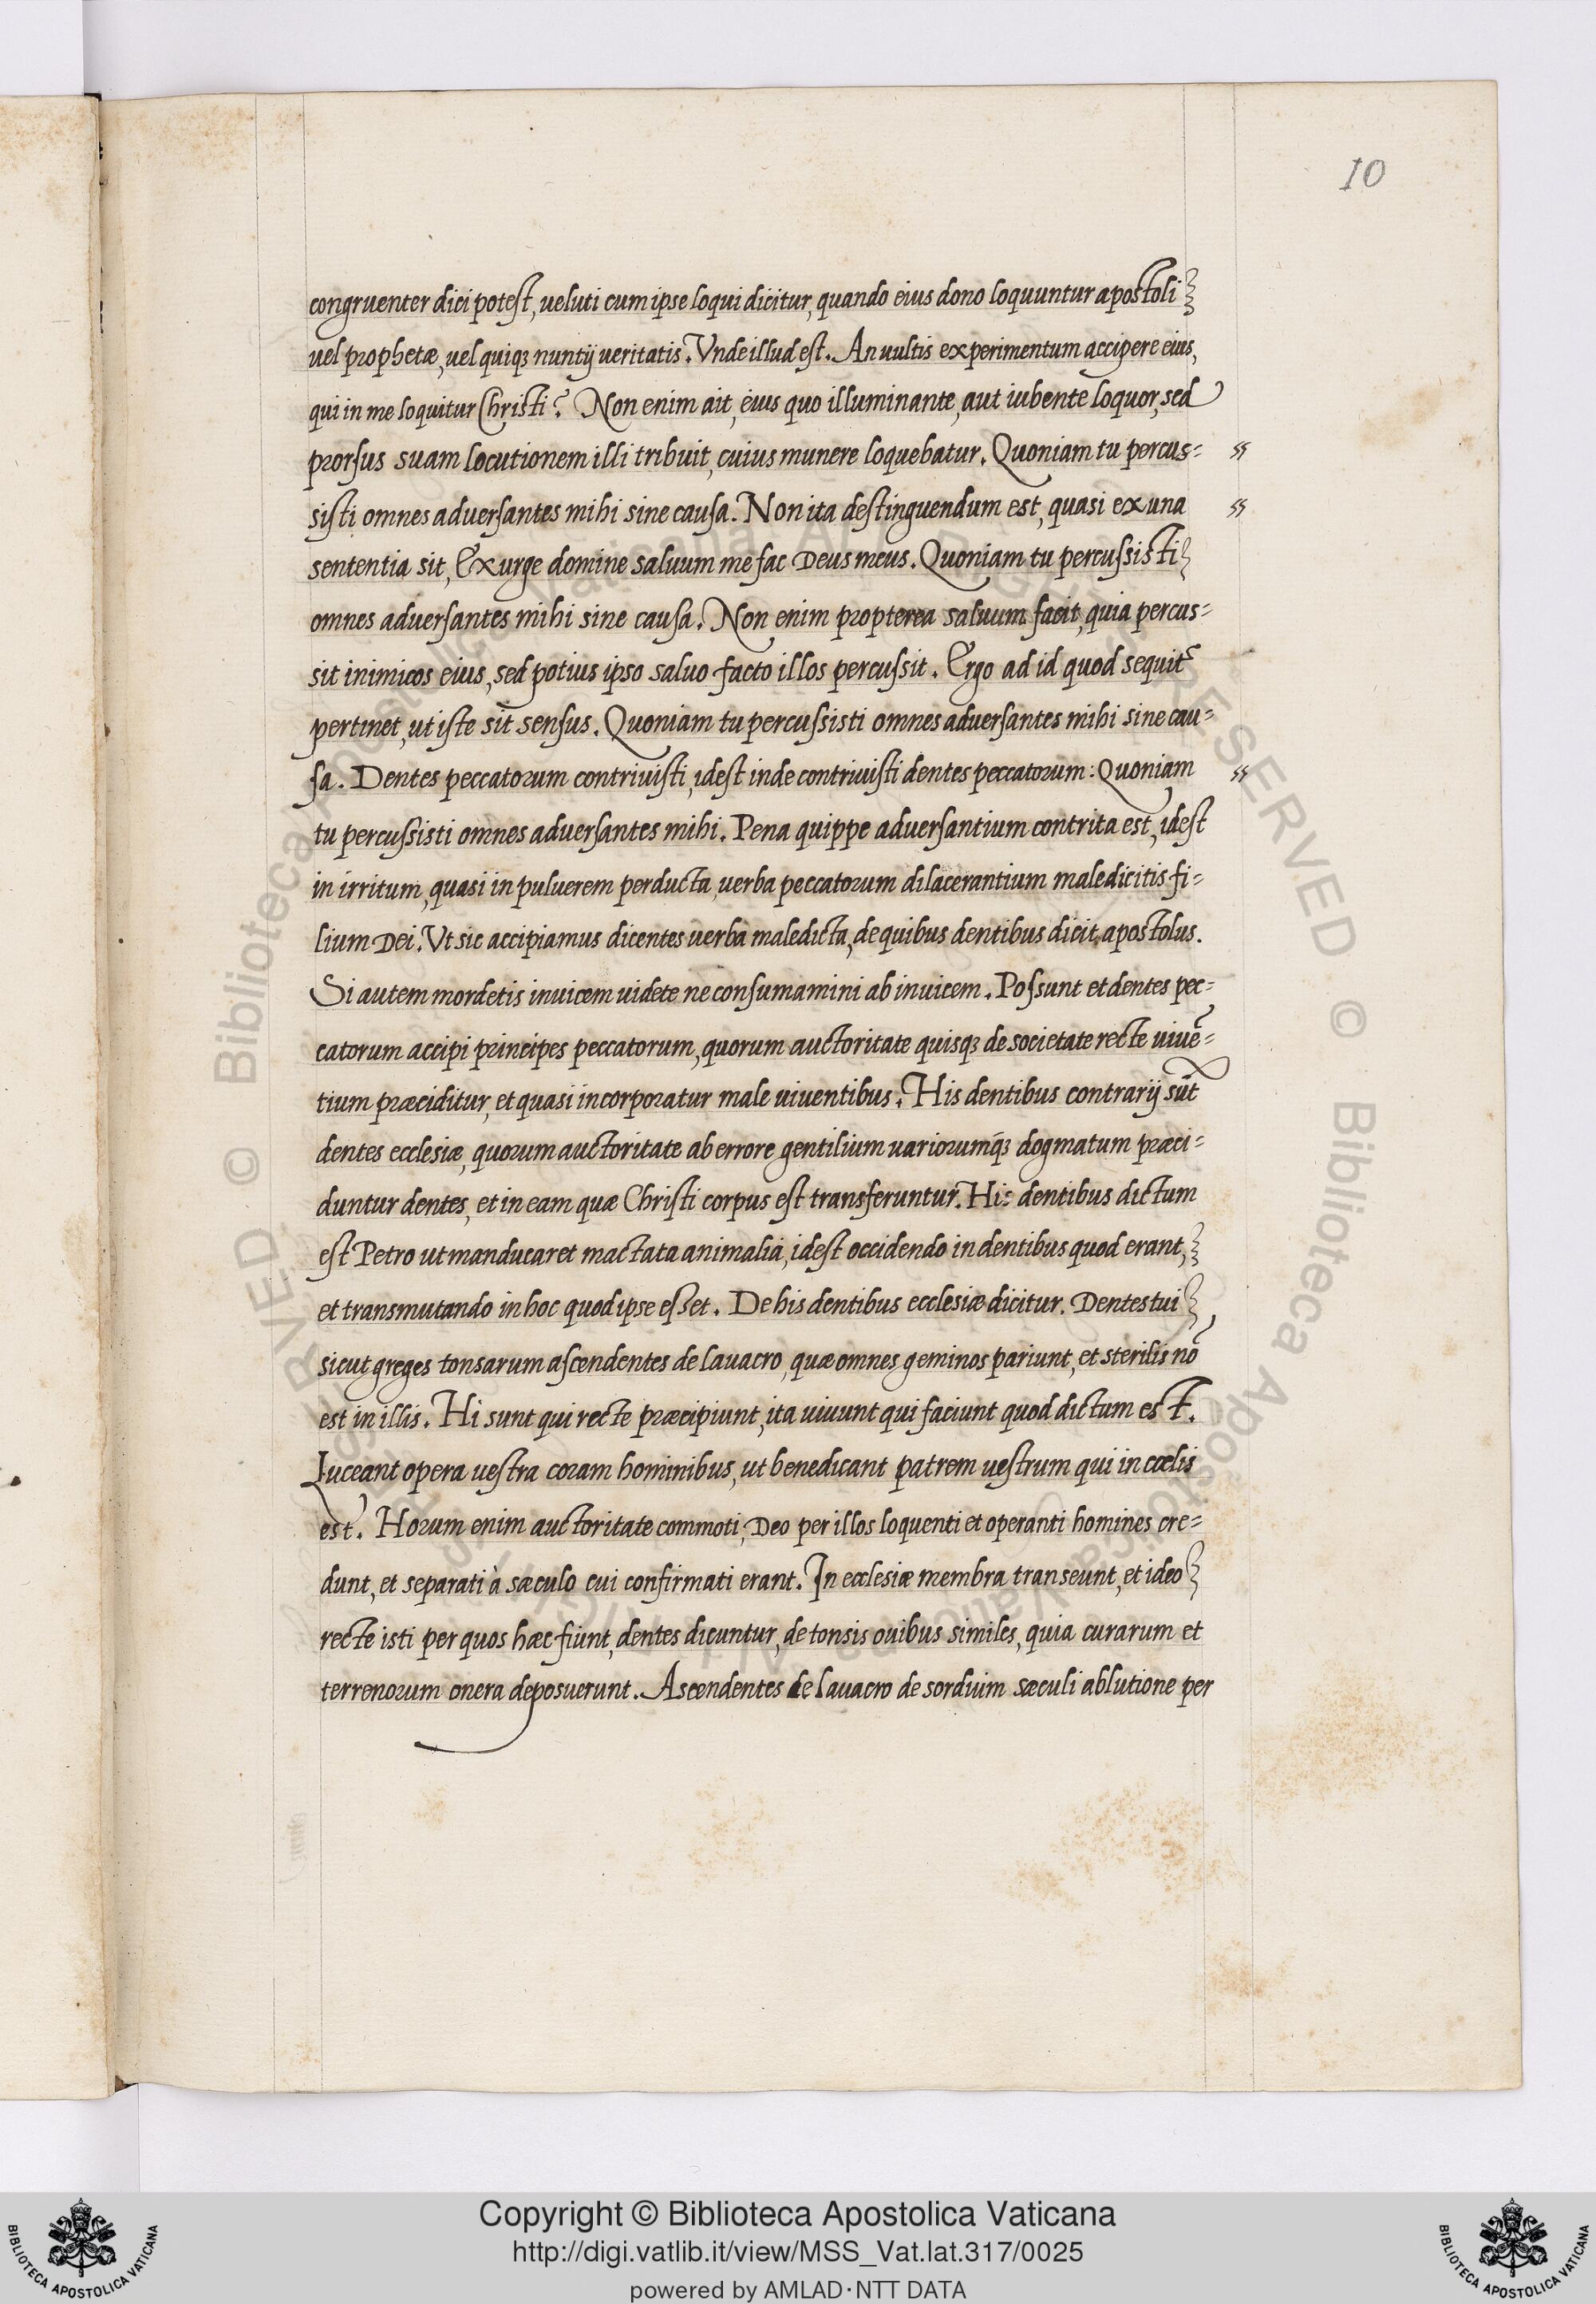 10
congruenter dici potest, ueluti cum ipse loqui dicitur, quando eius dono loquuntur apostoli
uel prophetæ, uel quiqꝫ nuntij ueritatis. Vnde illud est. An uultis experimentum accipere eius,
qui in me loquitur Christi? Non enim ait, eius quo illuminante, aut iubente loquor, sed
prorsus suam locutionem illi tribuit, cuius munere loquebatur. Quoniam tu percus=
sisti omnes aduersantes mihi sine causa. Non ita destinguendum est, quasi ex una
sententia sit, Exurge domine saluum me fac Deus meus. Quoniam tu percussisti
omnes aduersantes mihi sine causa. Non enim propterea saluum facit, quia percus=
sit inimicos eius, sed potius ipso saluo facto illos percussit. Ergo ad id quod sequit᷑
pertinet, ut iste sit sensus. Quoniam tu percussisti omnes aduersantes mihi sine cau=
sa. Dentes peccatorum contriuisti, idest inde contriuisti dentes peccatorum: Quoniam
tu percussisti omnes aduersantes mihi. Pena quippe aduersantium contrita est, idest
in irritum, quasi in puluerem perducta, uerba peccatorum dilacerantium maledicitis fi=
lium Dei. Vt sic accipiamus dicentes uerba maledicta, de quibus dentibus dicit apostolus.
Si autem mordetis inuicem uidete ne consumamini ab inuicem. Possunt et dentes pec=
catorum accipi principes peccatorum, quorum auctoritate quisqꝫ de societate recte uiuē=
tium præciditur, et quasi incorporatur male uiuentibus. His dentibus contrarij sūt
dentes ecclesiæ, quorum auctoritate ab errore gentilium uariorumqꝫ dogmatum præci=
duntur dentes, et in eam quæ Christi corpus est transferuntur. His dentibus dictum
est Petro ut manducaret mactata animalia, idest occidendo in dentibus quod erant,
et transmutando in hoc quod ipse esset. De his dentibus ecclesiæ dicitur. Dentes tui
sicut greges tonsarum ascendentes de lauacro, quæ omnes geminos pariunt, et sterilis nō
est in illis. Hi sunt qui recte præcipiunt, ita uiuunt qui faciunt quod dictum est.
Luceant opera uestra coram hominibus, ut benedicant patrem uestrum qui in cœlis
est. Horum enim auctoritate commoti, Deo per illos loquenti et operanti homines cre=
dunt, et separati à sæculo cui confirmati erant. In ecclesiæ membra transeunt, et ideo
recte isti per quos hæc fiunt, dentes dicuntur, de tonsis ouibus similes, quia curarum et
terrenorum onera deposuerunt. Ascendentes de lauacro de sordium sæculi ablutione per
Copyright © Biblioteca Apostolica Vaticana
http://digi.vatlib.it/view/MSS_Vat.lat.317/0025
powered by AMLAD·NTT DATA
BIBLIOTECA APOSTOLICA VATICANA
BIBLIOTECA APOSTOLICA VATICANA